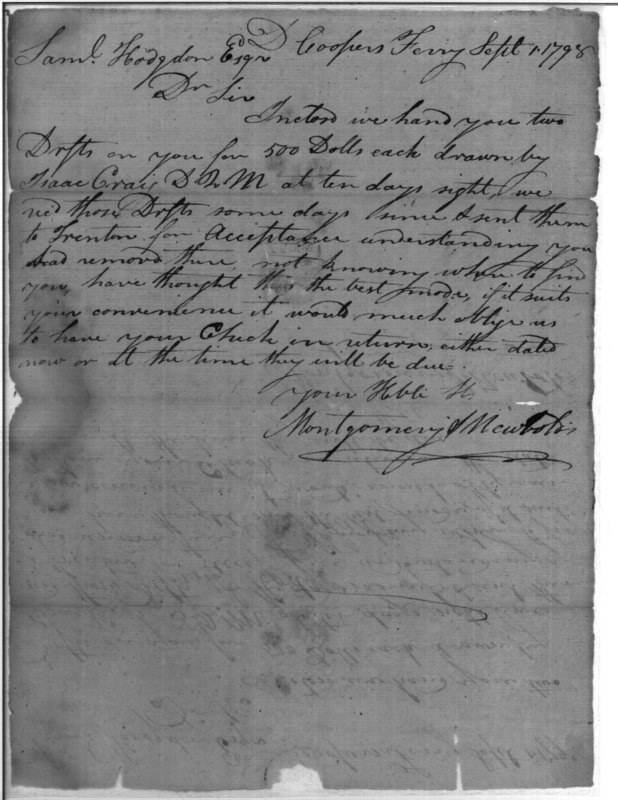 Coopers Ferry Sept 1 1798
Saml. Hodgdon Esqr
Dr Sir
Inclosd we hand you two
Drfts on you for 500 Dolls each drawn by
Isaac Craig D Q M at ten days sight, we
recd those Drfts some days since & sent them
to Trenton for Acceptance understanding you
had removd there, not knowing where to find
you, have thought this the best mode, if it suits
your convenience it would much oblije us
to have your Check in return, either dated
now or at the time they will be due.
your Hble St
Montgomery & Newbolds